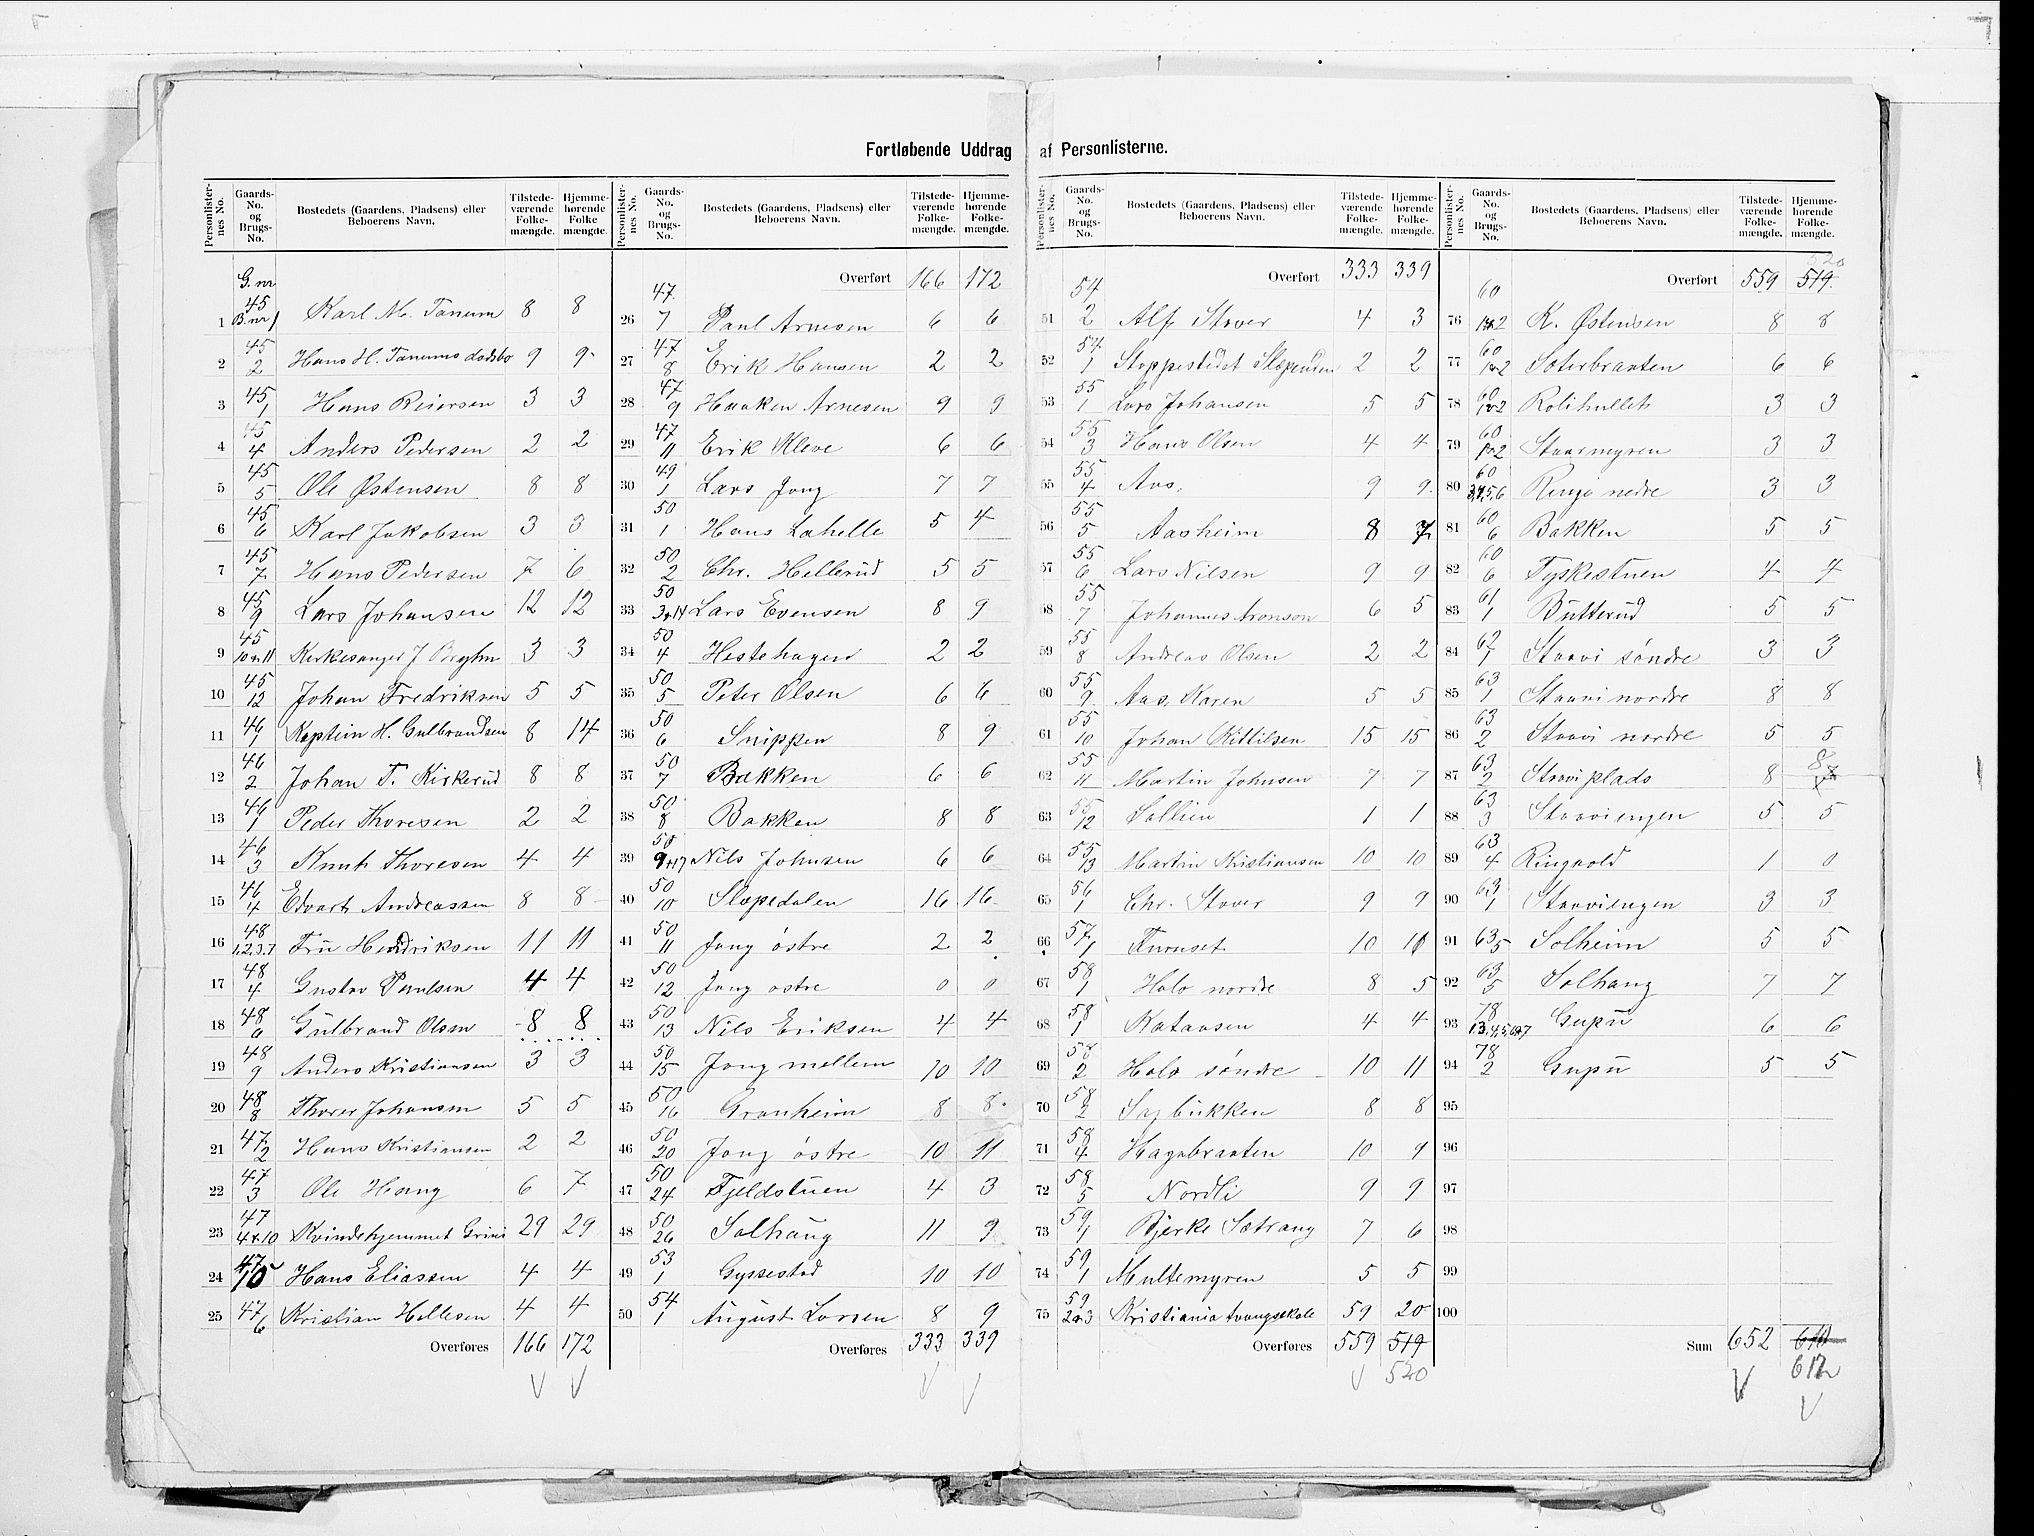 Fortløbende Uddrag af Personlisterne.
Personlisternes No. Gaards-No. og Brugs-No. Bostedets (Gaardens, Pladsens) eller Beboerens Navn. Tilstedeværende Folkemængde. Hjemmehørende Folkemængde.
G. nr 45
1 B. nr 1 Karl M. Tanum 8 8
2 45/2 Hans H. Tanums dødsbo 9 9
3 45/1 Hans Reiersen 3 3
4 45/4 Anders Pedersen 2 2
5 45/5 Ole Østensen 8 8
6 45/6 Karl Jakobsen 3 3
7 45/7 Hans Pedersen 7 6
8 45/9 Lars Johansen 12 12
9 45/10 & 11 Kirkesanger J 3 3
10 45/12 Johan Fredriksen 5 5
11 46/1 Kaptein H. Gulbrandsen 8 14
12 46/2 Johan T. Kirkerud 8 8
13 46/1 Peder Thoresen 2 2
14 46/3 Knut Thoresen 4 4
15 46/4 Edvart Andreassen 8 8
16 48/1,2,3,7 Fru Hendriksen 11 11
17 48/4 Gustav Paulsen 4 4
18 48/6 Gulbrand Olsen 8 8
19 48/9 Anders Kristiansen 3 3
20 48/8 Thorer Johansen 5 5
21 47/2 Hans Kristiansen 2 2
22 47/3 Ole Haug 6 7
23 47/4 & 10 Kvindehjemmet Grini 29 29
24 47/5 Hans Eliassen 4 4
25 47/6 Kristian Hellesen 4 4
Overføres 166 172
Personlisternes No. Gaards-No. og Brugs-No. Bostedets (Gaardens, Pladsens) eller Beboerens Navn. Tilstedeværende Folkemængde. Hjemmehørende Folkemængde.
Overført 166 172
26 47/7 Paul Arnesen 6 6
27 47/8 Erik Hansen 2 2
28 47/9 Haaken Arnesen 9 9
29 47/11 Erik Kleve 6 6
30 49/1 Lars Jong 7 7
31 50/1 Hans Løhelle 5 4
32 50/2 Chr. Hellerud 5 5
33 50/3+14 Lars Evensen 8 9
34 50/4 Hestehagen 2 2
35 50/5 Peter Olsen 6 6
36 50/6 Snippen 8 9
37 50/7 Bakken 6 6
38 50/8 Bakken 8 8
39 50/9+17 Nils Johnsen 6 6
40 50/10 Slæpedalen 16 16
41 50/11 Jong østre 2 2
42 50/12 Jong østre 0 0
43 50/13 Nils Eriksen 4 4
44 50/15 Jong mellem 10 10
45 50/16 Granheim 8 8
46 50/20 Jong østre 10 11
47 50/24 Fjeldstuen 4 3
48 50/26 Solhaug 11 9
49 53/1 Gyssestad 10 10
50 54/1 August Larsen 8 9
Overføres 333 339
Personlisternes No. Gaards-No. og Brugs-No. Bostedets (Gaardens, Pladsens) eller Beboerens Navn. Tilstedeværende Folkemængde. Hjemmehørende Folkemængde.
Overført 333 339
51 54/2 Alf Staver 4 3
52 54/1 Stoppestedet Slæpenden 2 2
53 55/1 Lars Johansen 5 5
54 55/3 Hans Olsen 4 4
55 55/4 Aas, 9 9
56 55/5 Aasheim 8 7
57 55/6 Lars Nilsen 9 9
58 55/7 Johannes Aronson 6 5
59 55/8 Andreas Olsen 2 2
60 55/9 Aas, Karen 5 5
61 55/10 Johan Kittilsen 15 15
62 55/11 Martin Johnsen 7 7
63 55/12 Sollien 1 1
64 55/13 Martin Kristiansen 10 10
65 56/1 Chr. Staver 9 9
66 57/1 Furuset 10 11
67 58/1 Holo nordre 8 5
68 58/1 Kataasen 4 4
69 58/2 Holo søndre 10 11
70 58/2 Sagbakken 8 8
71 58/4 Hagabraaten 10 9
72 58/5 Nordli 9 9
73 59/1 Bjerke Sætrang 7 6
74 59/1 Multemyren 5 5
75 59/2&3 Kristiania tvangsskole 59 20
Overføres 559 519
520
Personlisternes No. Gaards-No. og Brugs-No. Bostedets (Gaardens, Pladsens) eller Beboerens Navn. Tilstedeværende Folkemængde. Hjemmehørende Folkemængde.
520
Overført 559 519
76 60/1&2 K. Østensen 8 8
77 60/1&2 Soterbraaten 6 6
78 60/1&2 Rolihullet 3 3
79 60/1&2 Staasmyren 3 3
80 60/3,4,5,6 Ringi nedre 3 3
81 60/6 Bakken 5 5
82 60/6 Tyskestuen 4 4
83 61/1 Butterud 5 5
84 62/1 Staavi søndre 3 3
85 63/1 Staavi nordre 8 8
86 63/2 Staavi nordre 5 5
87 63/2 Staaviplads 8 7 8
88 63/3 Staaviengen 5 5
89 63/4 Ringvold 1 0
90 63/1 Staaviengen 3 3
91 63/5 Solheim 5 5
92 63/5 Solhaug 7 7
93 78/1,3,4,5,6&7 Gupu 6 6
94 78/2 Gupu 5 5
95
96
97
98
99
100
Sum 652 611
612